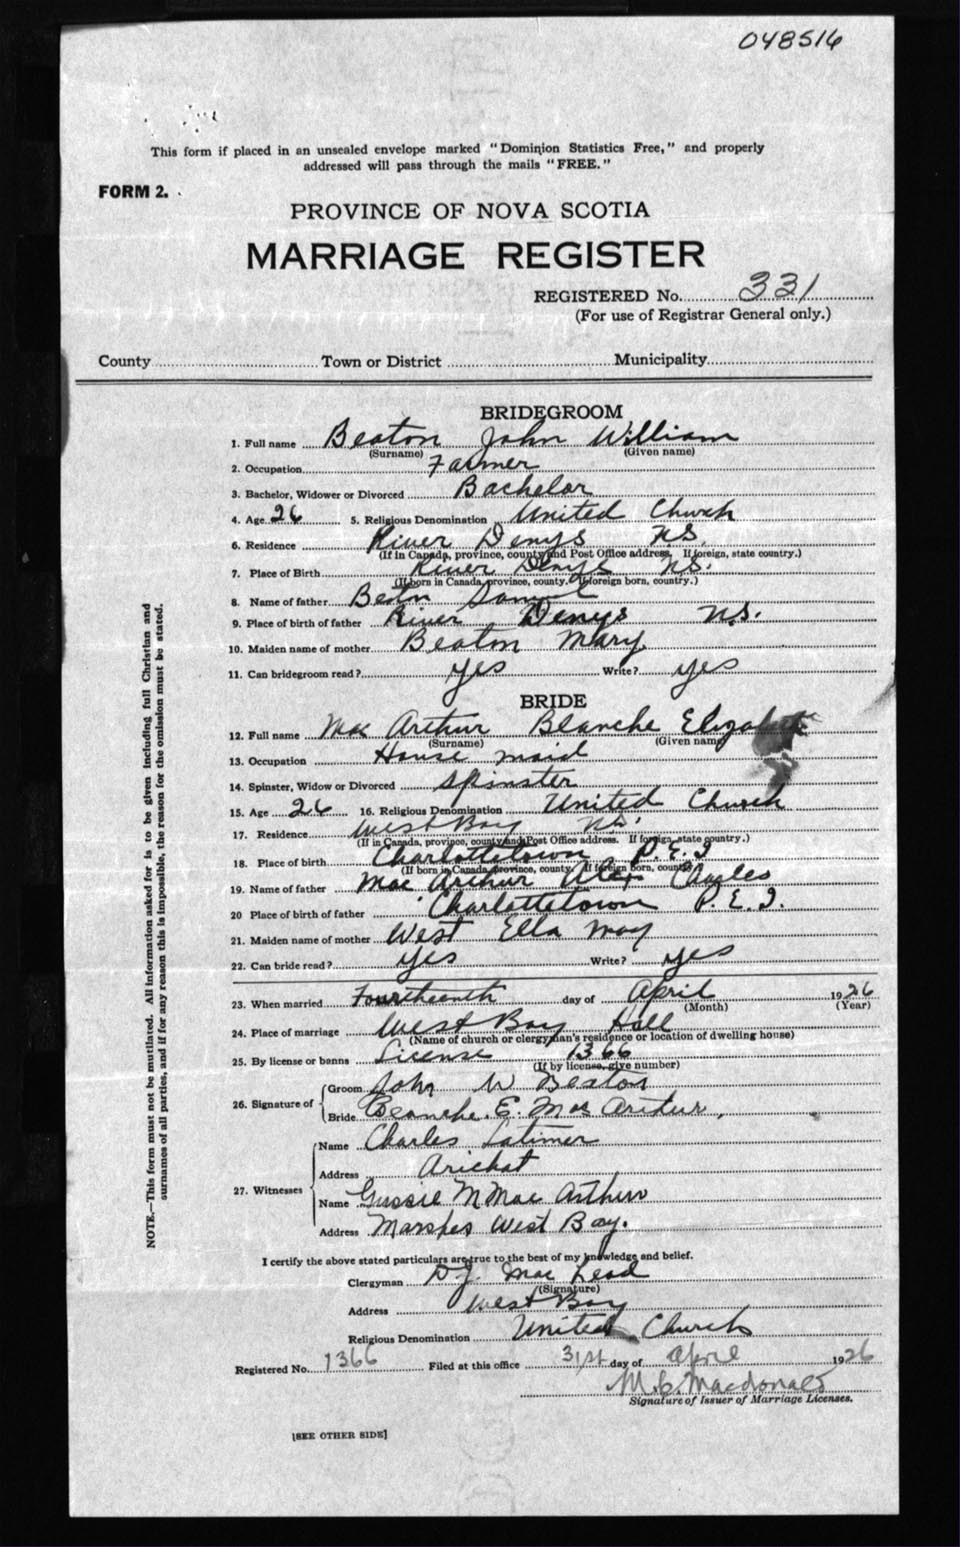 048516
This form if placed in an unsealed envelope marked "Dominion Statistics Free," and properly
addressed will pass through the mails "FREE."
FORM 2.
PROVINCE OF NOVA SCOTIA
MARRIAGE REGISTER
REGISTERED No. 331
(For use of Registrar General only.)
County Town or District Municipality
BRIDEGROOM
1. Full name Beaton John William
(Surname) (Given name)
2. Occupation Farmer
3. Bachelor, Widower or Divorced Bachelor
4. Age 26 5. Religious Denomination United Church
6. Residence River Denys N.S.
(If in Canada, province, county and Post Office address. If foreign, state country.)
7. Place of Birth River Denys N.S.
(If born in Canada, province, county. If foreign born, country.)
8. Name of father Beaton Samuel
9. Place of birth of father River Denys N.S.
10. Maiden name of mother Beaton Mary
11. Can bridegroom read? yes Write? yes
BRIDE
12. Full name Mac Arthur Blanche Elizabeth
(Surname) (Given name)
13. Occupation House maid
14. Spinster, Widow or Divorced Spinster
15. Age 26 16. Religious Denomination United Church
17. Residence West Bay N.S.
(If in Canada, province, county and Post Office address. If foreign, state country.)
18. Place of birth Charlottetown P.E.I
(If born in Canada, province, county. If foreign born, country)
19. Name of father Mac Arthur Alex Charles
20 Place of birth of father Charlottetown P.E.I.
21. Maiden name of mother West Ella May
22. Can bride read? yes Write? yes
23. When married Fourteenth day of April 1926
(Month) (Year)
24. Place of marriage West Bay Hall
(Name of church or clergyman's residence or location of dwelling house)
25. By license or banns License 1366
(If by license, give number)
26. Signature of Groom John W Beaton
Bride Blanche. E. Mac Arthur.
27. Witnesses Name Charles Latimer
Address Arichat
Name Gussie M Mac Arthur
Address Marshes West Bay.
I certify the above stated particulars are true to the best of my knowledge and belief.
Clergyman D.J. Mac Leod
(Signature)
Address West Bay
Religious Denomination United Church
Registered No. 1366 Filed at this office 31st day of April 1926
M.C. Macdonald
Signature of Issuer of Marriage Licenses.
[SEE OTHER SIDE]
NOTE.—This form must not be mutilated. All information asked for is to be given including full Christian and
surnames of all parties, and if for any reason this is impossible, the reason for the omission must be stated.